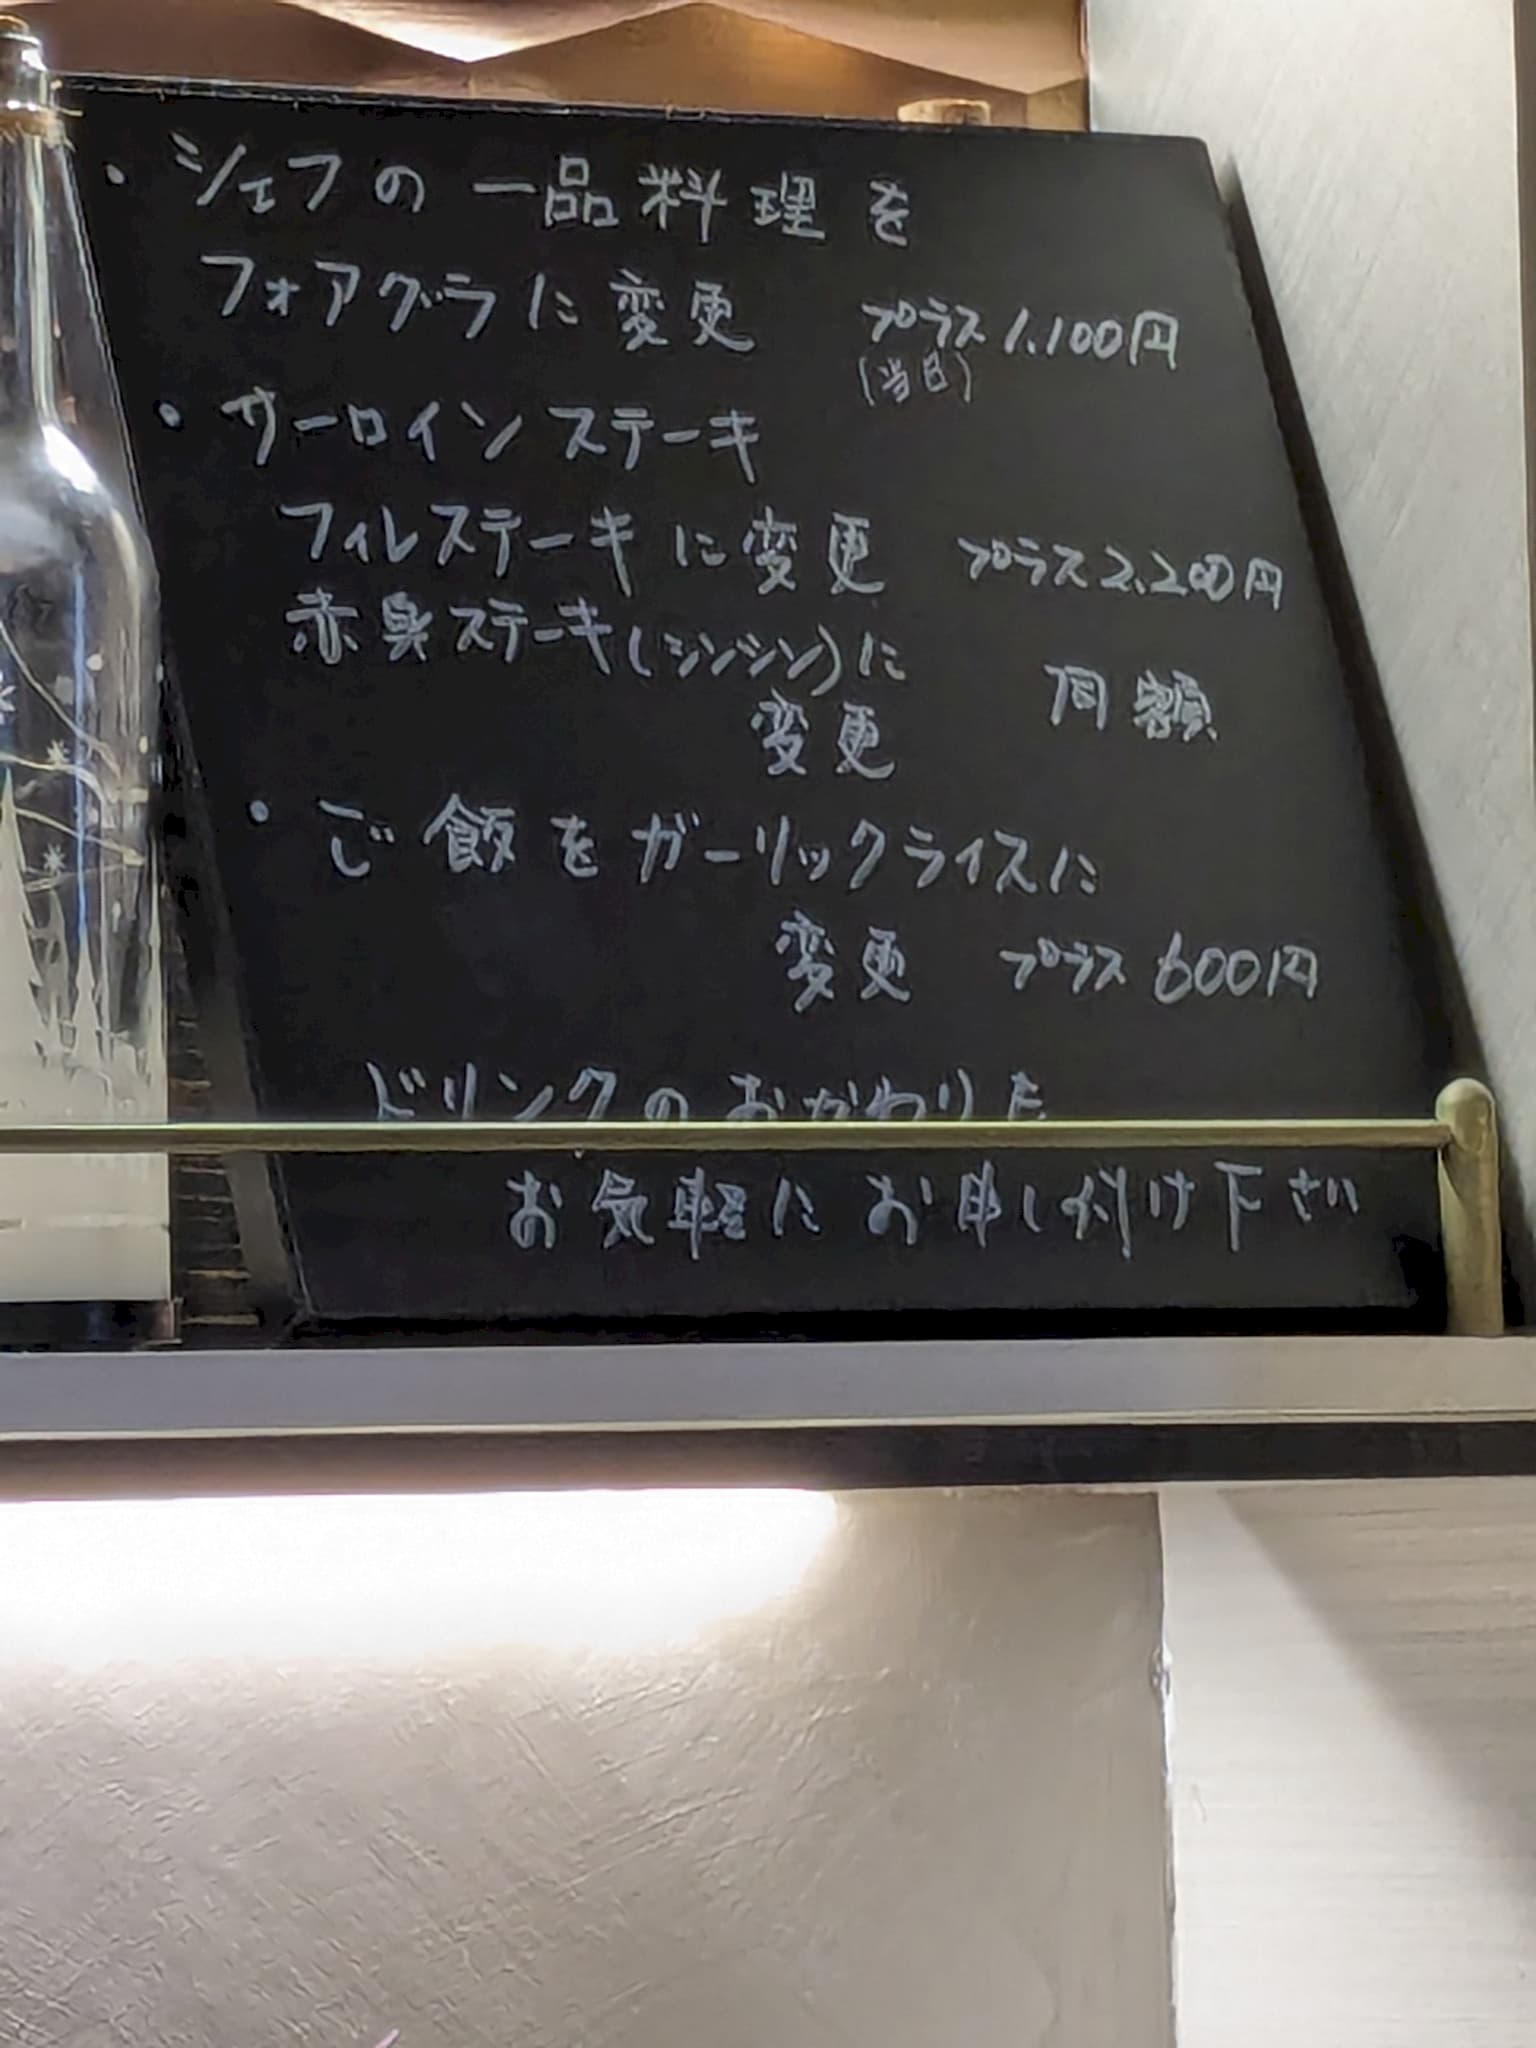 ・シェフの一品料理を
フォアグラに変更 プラス1.100円
(当日)
・サーロインステーキ
フィレステーキに変更 プラス2.200円
赤身ステーキ(シンシン)に
変更 同額
・ご飯をガーリックライスに
変更 プラス600円
ドリンクのおかわりも
お気軽にお申し付け下さい